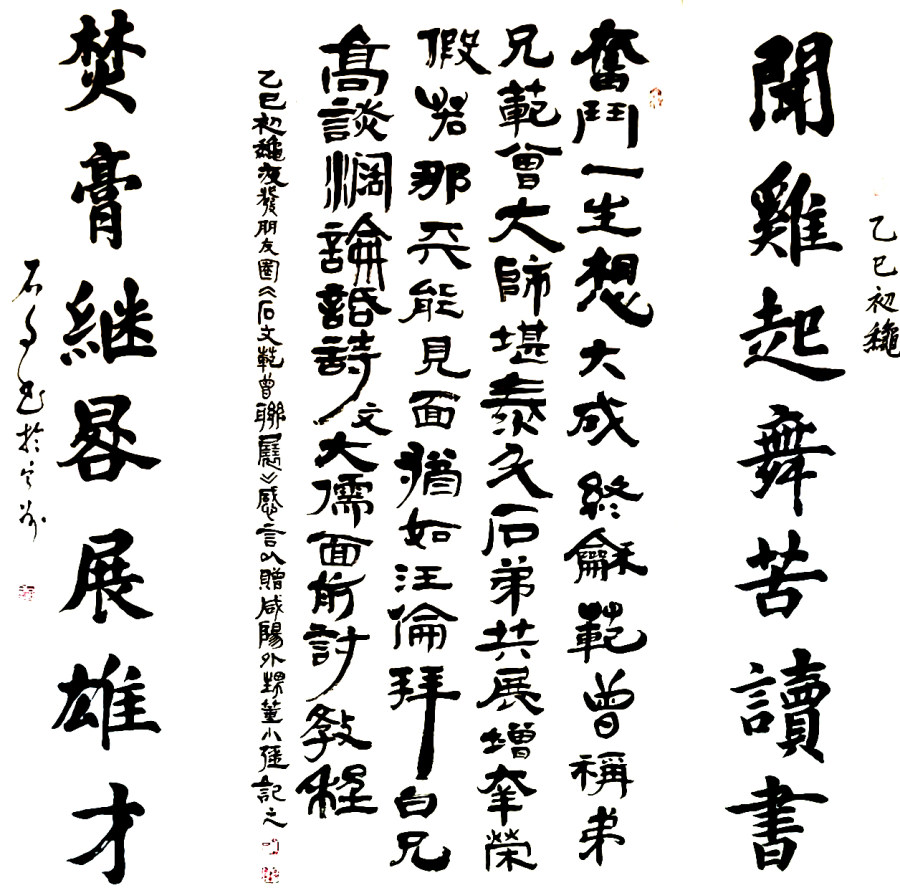 乙巳初龝
聞雞起舞苦讀書
奮鬥一生想大成終龢範曾稱弟
兄範曾大師堪泰石弟共展增榮
假若那天能見面猶如汪倫拜白兄
高談濶論詩文大儒面前討教程
乙巳初龝夜發朋友圈《石文範曾聯展》感言以贈咸陽外甥董小强記之
焚膏継晷展雄才
石書於